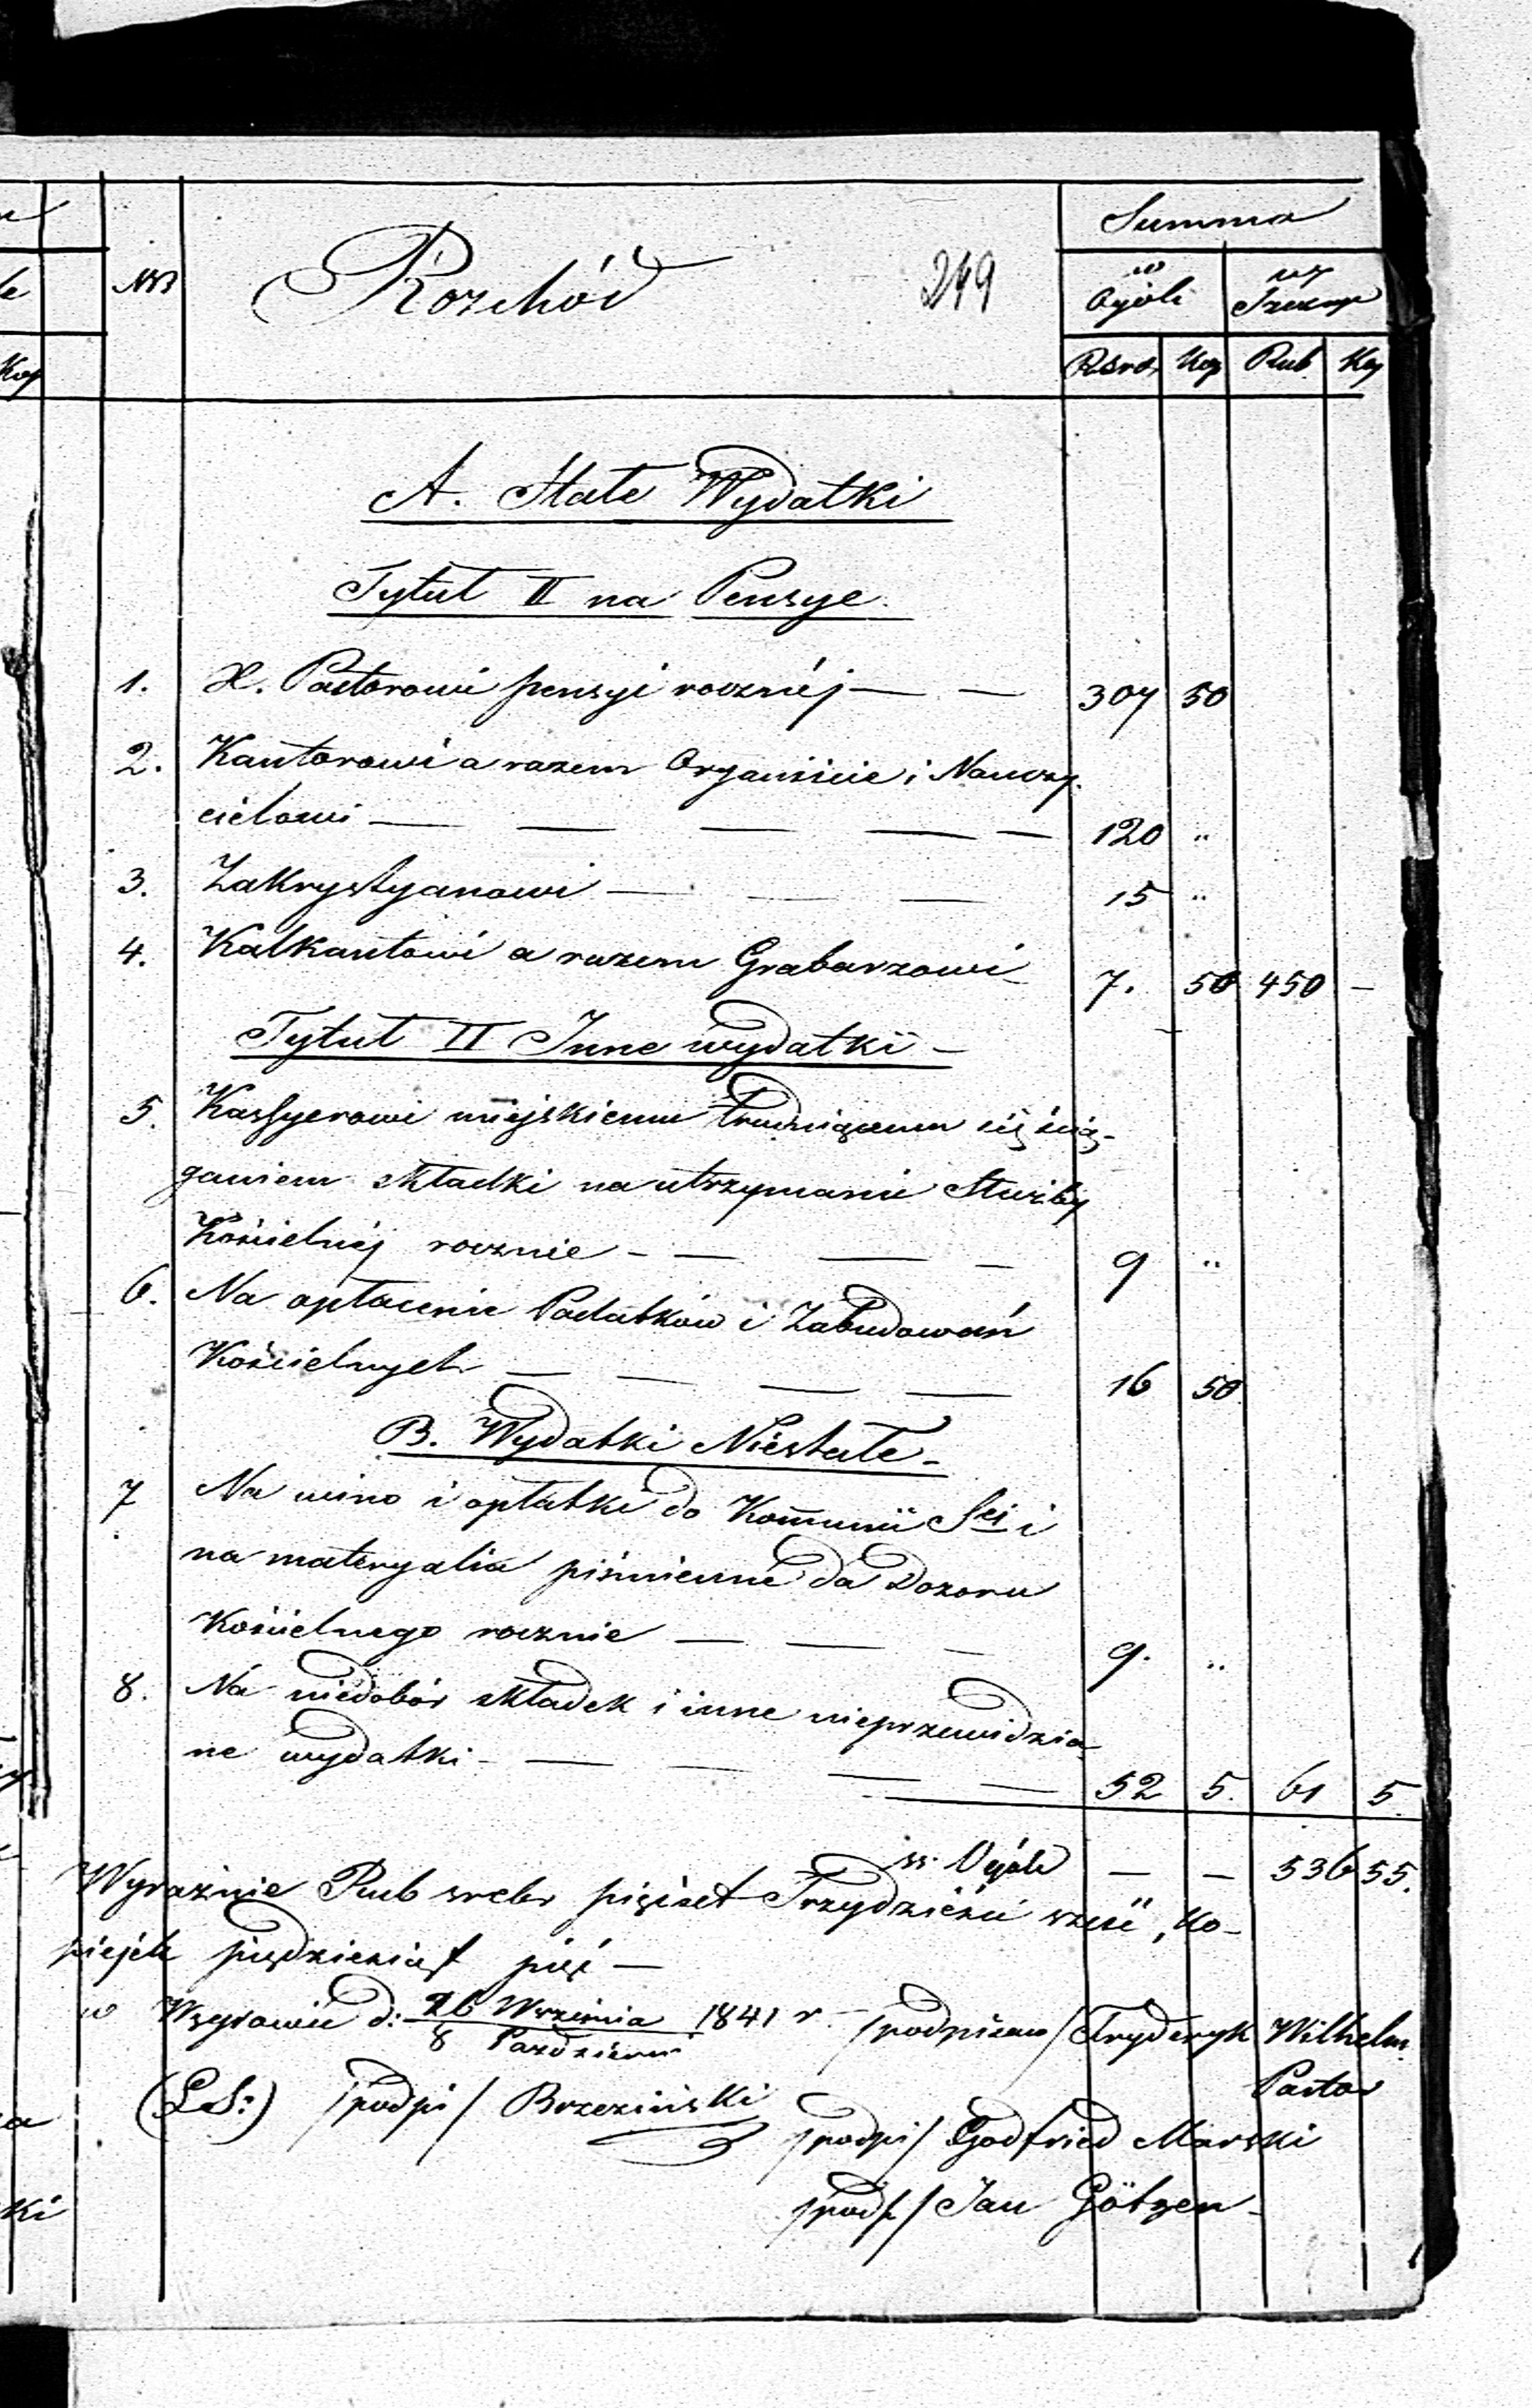 Summa
NB Rozchód 249 w Ogóle w Szczeg.
Rsrb. Kop Rub. Kop
A. Stałe Wydatki
Tytuł II na Pensye.
1. X. Pastorowi pensyi rocznéj — — 307 50
2. Kantorowi a razem Organiście i Nauczy-
cielowi — — — — — 120 "
3. Zakrystyanowi — — — 15 "
4. Kalkantowi a razem Grabarzowi 7. 50 450 —
Tytuł II Inne wydatki —
5. Kassyerowi miejskiemu trudniącemu się ścią-
ganiem składki na utrzymanie Służby
Kościelnéj rocznie — — — — 9 "
6. Na opłacenie Podatków i Zabudowań
Kościelnych — — — — 16 50
B. Wydatki Niestałe —
7 Na wino i opłatki do Kommunii Sej i
na materyalia piśmienne da Dozoru
Kościelnego rocznie — — — 9. "
8. Na niedobór składek i inne nieprzewidzia-
ne wydatki — — — — — 52 5. 61 5.
w Ogóle — — 536 55.
Wyraźnie Rub srebr pięćset Trzydzieści sześć, Ko-
piejek pięćdziesiąt pięć —
w Węgrowie d: 26 Września 1841 r. /podpisano/ Fryderyk Wilhelm
8 Paździer.
Pastor
(L.S:) /podpi/ Brzeziński
/podpi/ Godfried Marski
/podp./ Jan Götzen